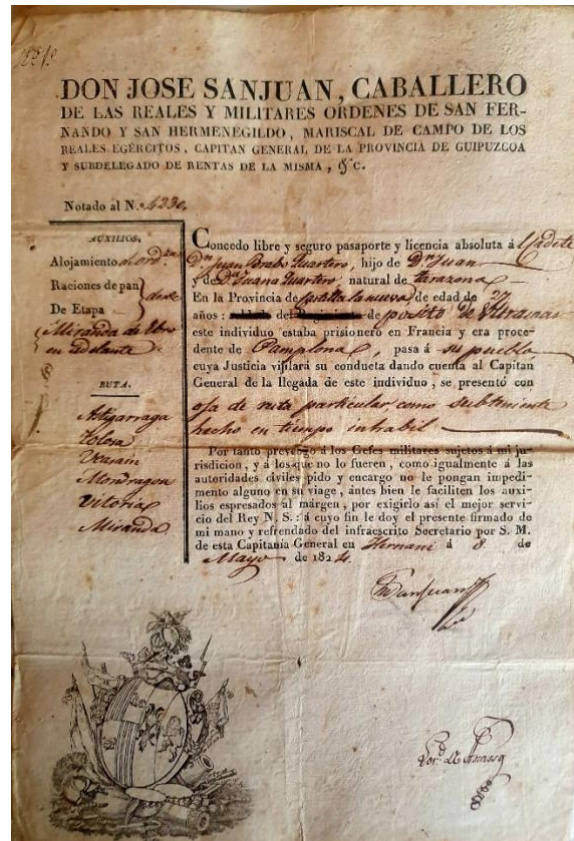 DON JOSE SANJUAN, CABALLERO
DE LAS REALES Y MILITARES ORDENES DE SAN FER-
NANDO Y SAN HERMENEGILDO, MARISCAL DE CAMPO DE LOS
REALES EGÉRCITOS, CAPITAN GENERAL DE LA PROVINCIA DE GUIPUZCOA
Y SUBDELEGADO DE RENTAS DE LA MISMA, &C.
Notado al N.
AUXILIOS.
Alojamiento
Raciones de pan
De Etapa
desde
Miranda de Ebro
en adelante
RUTA.
Astigarraga
Tolosa
Mondragon
Vitoria
Miranda
Concedo libre y seguro pasaporte y licencia absoluta á Cadete
Dn Juan Brabo Quartero, hijo de Dn Juan
y de Da Juana Quartero, natural de Tarazona
En la Provincia de Castilla la nueva de edad de 27
años: de
este individuo estaba prisionero en Francia y era proce-
dente de Pamplona, pasa á su pueblo
cuya Justicia vijilará su conducta dando cuenta al Capitan
General de la llegada de este individuo, se presentó con
oja de ruta particular como subteniente
hecho en tiempo inhabil
Por tanto prevengo á los Gefes militares sujetos á mi ju-
risdicion, y á los que no lo fueren, como igualmente á las
autoridades civiles pido y encargo no le pongan impedi-
mento alguno en su viage, ántes bien le faciliten los auxi-
lios espresados al márgen, por exigirlo así el mejor servi-
cio del Rey N. S.: á cuyo fin le doy el presente firmado de
mi mano y refrendado del infraescrito Secretario por S. M.
de esta Capitanía General en Hernani á 8 de
Mayo de 1824.
Sanjuan